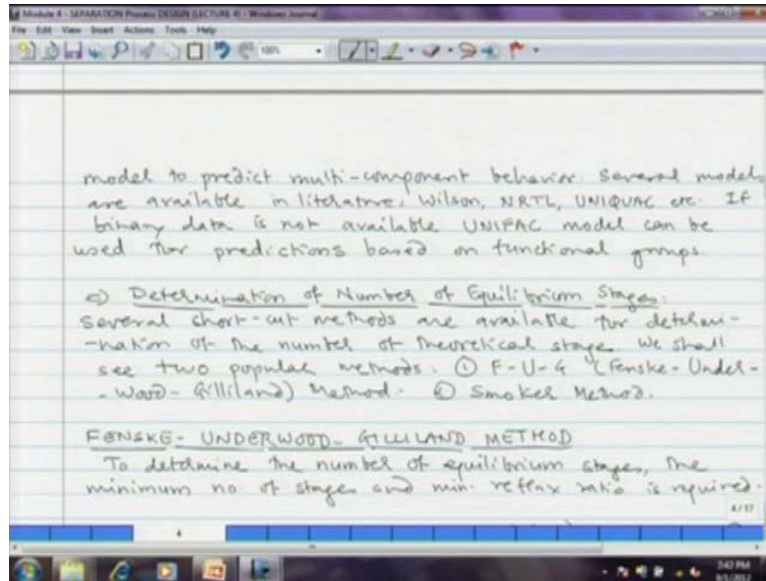 Module 4 - SEPARATION Process DESIGN (LECTURE 4) - Windows Journal
File Edit View Insert Actions Tools Help
100%
model to predict multi-component behavior. Several models
are available in literature, Wilson, NRTL, UNIQUAC etc. If
binary data is not available UNIFAC model can be
used for predictions based on functional groups.
Determination of Number of Equilibrium Stages:
Several short-cut methods are available for determi-
-nation of the number of theoretical stage. We shall
see two popular methods. ① F-U-G (Fenske-Under-
-wood-Gilliland) Method. ② Smoker Method.
FENSKE-UNDERWOOD-GILLILAND METHOD
To determine the number of equilibrium stages, the
minimum no. of stages and min. reflux ratio is required.
4/17
4
3:42 PM